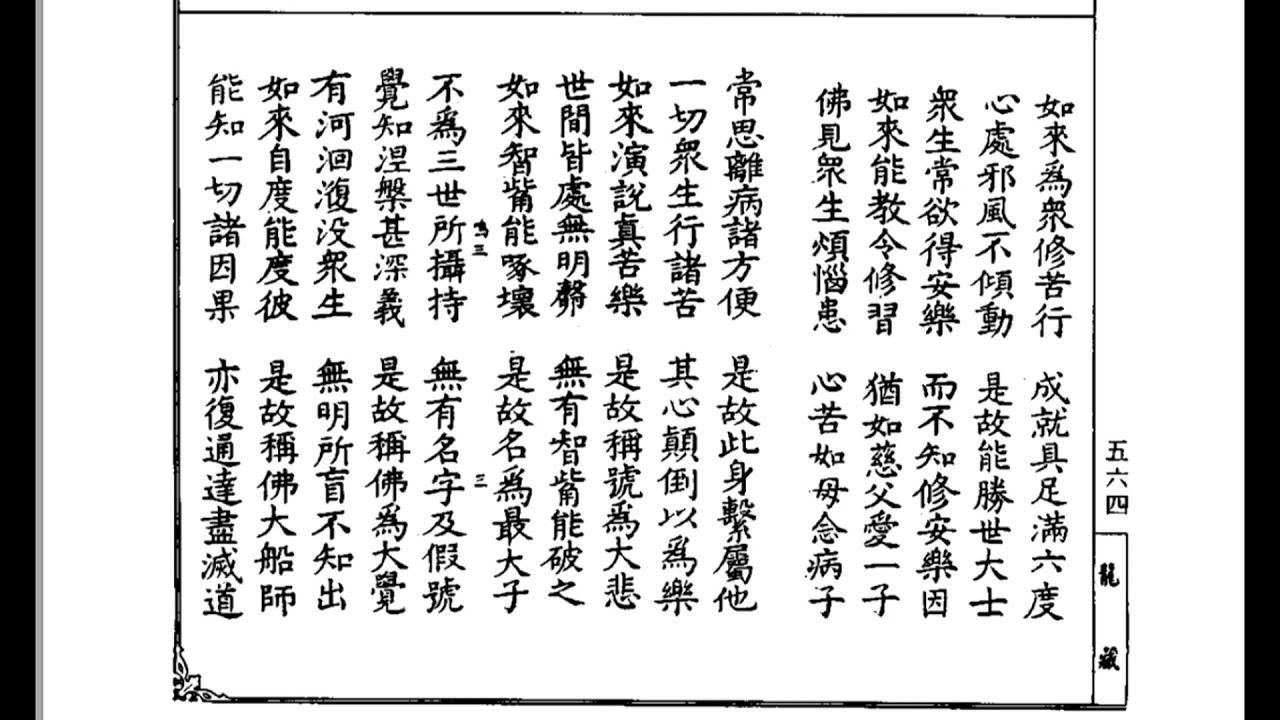 五六四
龍藏
如來爲衆修苦行 成就具足滿六度
心處邪風不傾動 是故能勝世大士
衆生常欲得安樂 而不知修安樂因
如來能教令修習 猶如慈父愛一子
佛見衆生煩惱患 心苦如母念病子
常思離病諸方便 是故此身繫屬他
一切衆生行諸苦 其心顛倒以爲樂
如來演說真苦樂 是故稱號爲大悲
世間皆處無明 無有智觜能破之
如來智觜能啄壞 是故名爲最大子
三
不爲三世所攝持 無有名字及假號
覺知涅槃甚深義 是故稱佛爲大覺
有河洄澓没衆生 無明所盲不知出
如來自度能度彼 是故稱佛大船師
能知一切諸因果 亦復通達盡滅道